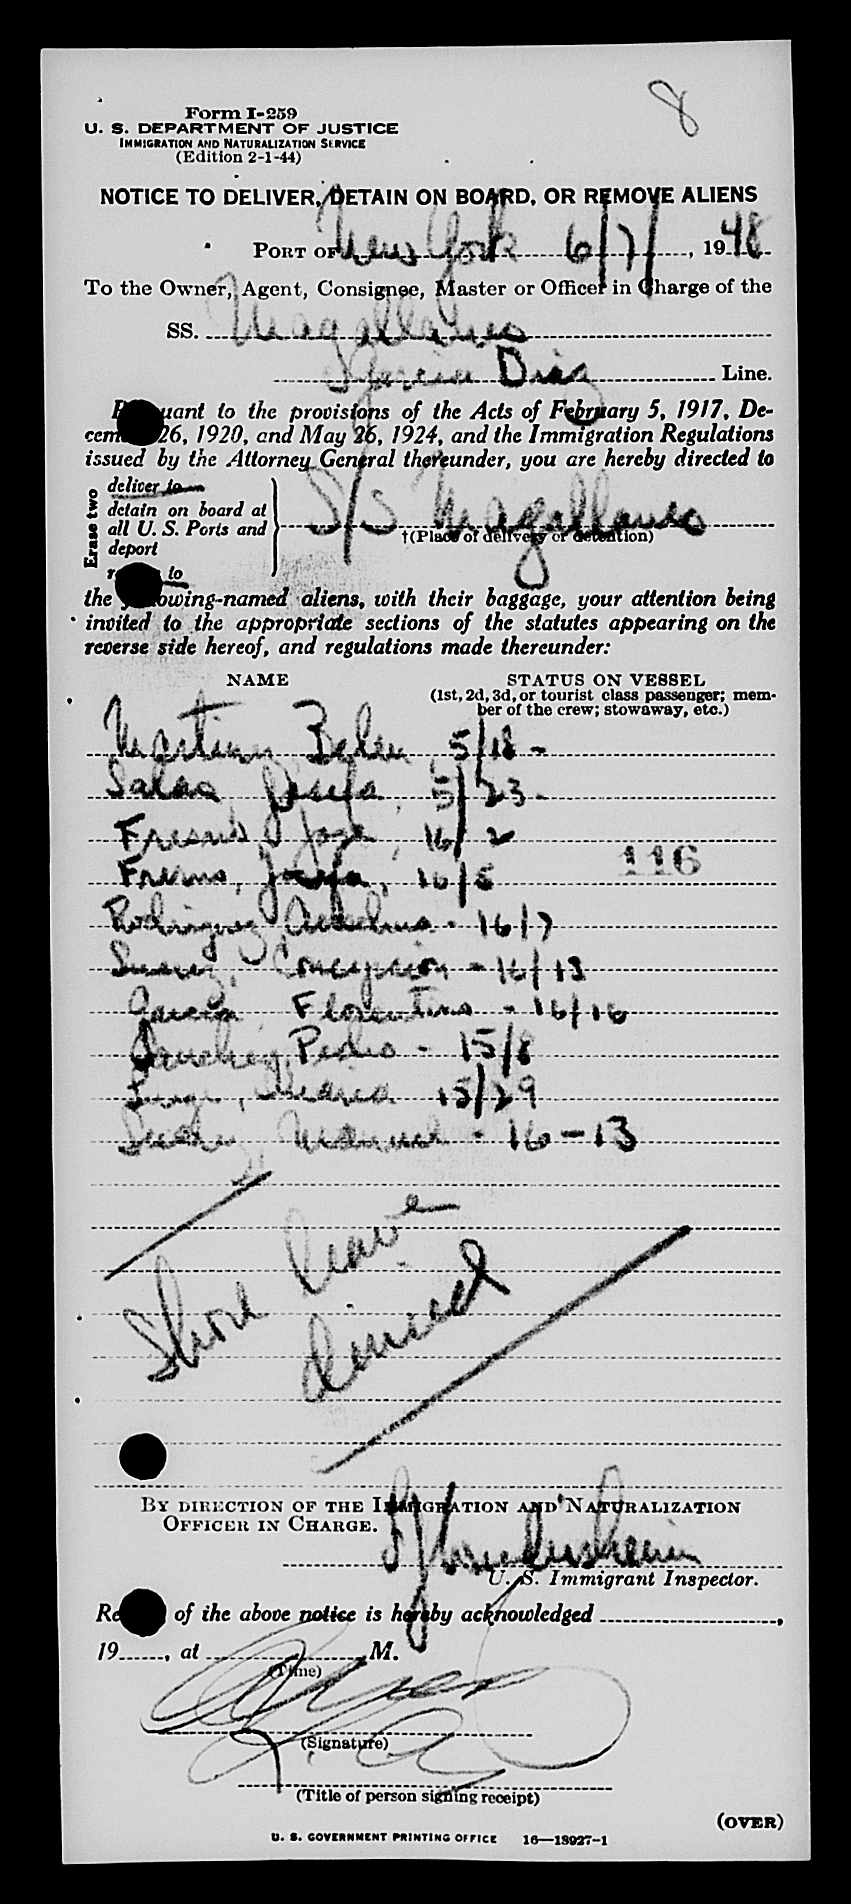 8
Form I-259
U. S. DEPARTMENT OF JUSTICE
IMMIGRATION AND NATURALIZATION SERVICE
(Edition 2-1-44)
NOTICE TO DELIVER, DETAIN ON BOARD, OR REMOVE ALIENS
PORT OF New York 6/7/, 1948
To the Owner, Agent, Consignee, Master or Officer in Charge of the
SS. Magallanes
Garcia Diaz Line.
uant to the provisions of the Acts of February 5, 1917, De-
cem 26, 1920, and May 26, 1924, and the Immigration Regulations
issued by the Attorney General thereunder, you are hereby directed to
Erase two
deliver to
detain on board at
all U. S. Ports and
deport
to
S/S Magallanes
†(Place of delivery or detention)
the owing-named aliens, with their baggage, your attention being
invited to the appropriate sections of the statutes appearing on the
reverse side hereof, and regulations made thereunder:
NAME STATUS ON VESSEL
(1st, 2d, 3d, or tourist class passenger; mem-
ber of the crew; stowaway, etc.)
Belen 5/18 -
Salas, Josefa, 5/23 -
Fresno, Jose, 16/2
Fresno, Josefa, 16/5
116
Rodriguez, - 16/7
Suarez, Concepcion - 16/13
Garcia, Florentino - 16/16
Sanchez, Pedro - 15/8
Maria 15/29
Suarez, Manuel - 16-13
Shore leave
denied
BY DIRECTION OF THE IMMIGRATION AND NATURALIZATION
OFFICER IN CHARGE.
U. S. Immigrant Inspector.
Re of the above notice is hereby acknowledged ,
19 , at M.
(Time)
(Signature)
(Title of person signing receipt)
(OVER)
U. S. GOVERNMENT PRINTING OFFICE 16—18927-1